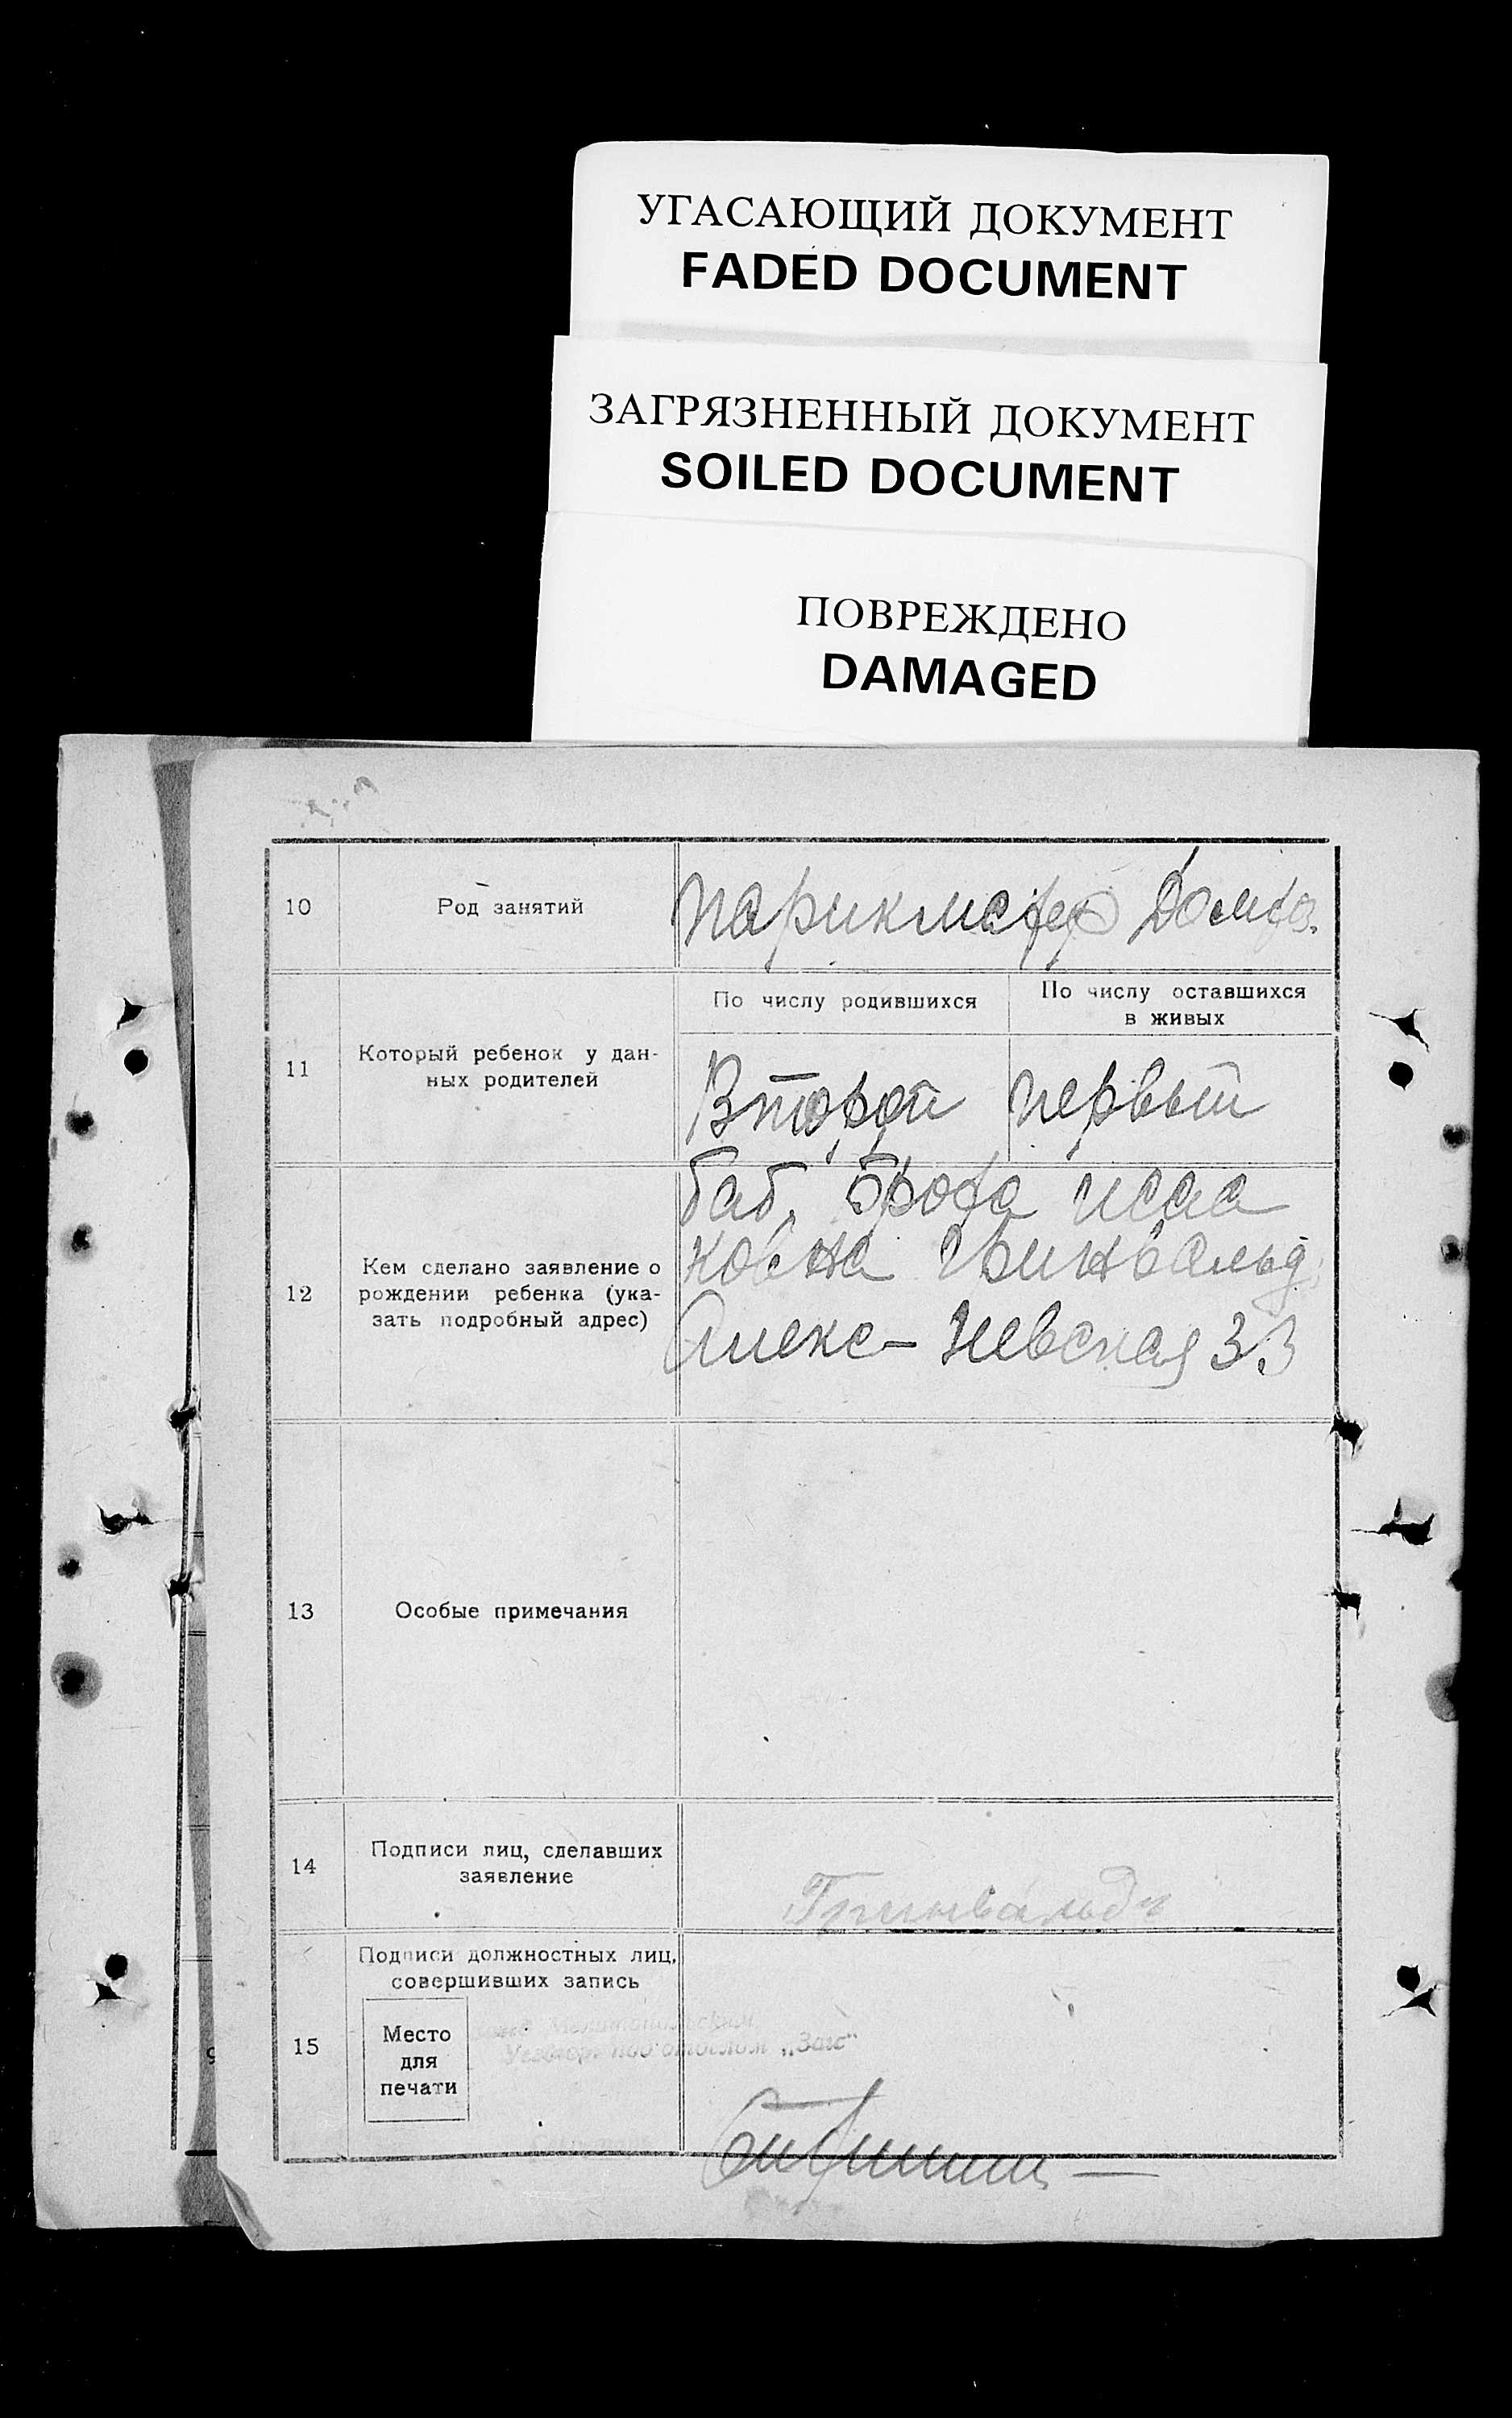 УГАСАЮЩИЙ ДОКУМЕНТ
FADED DOCUMENT
ЗАГРЯЗНЕННЫЙ ДОКУМЕНТ
SOILED DOCUMENT
ПОВРЕЖДЕНО
DAMAGED
10
Род занятий
парикмахер Домхоз.
11
Который ребенок у дан-
ных родителей
По числу родившихся
По числу оставшихся
в живых
Второй
первый
12
Кем сделано заявление о
рождении ребенка (ука-
зать подробный адрес)
баб. Броха Исаа
ковна Гринвальд.
Алекс-Невская 33
13
Особые примечания
14
Подписи лиц, сделавших
заявление
Гринвальд
15
Подписи должностных лиц,
совершивших запись
Место
для
печати
подотделом „Загс"